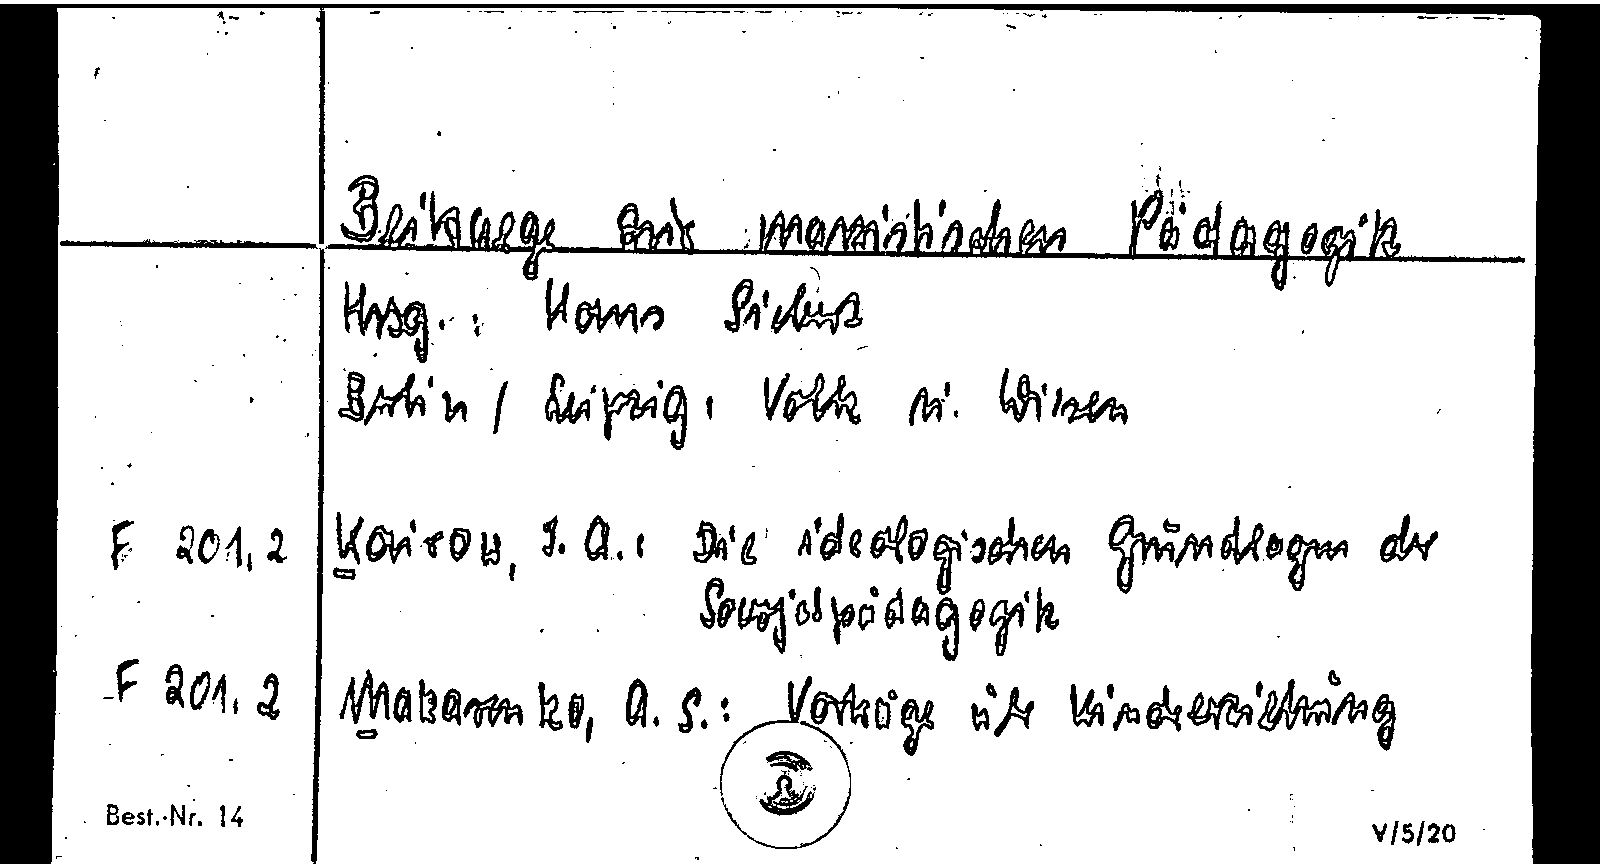 Beiträge zur marxistischen Pädagogik
Hrsg.: Hans Siebert
Berlin / Leipzig: Volk u. Wissen
F 201,2 Kairow, I. A.: Die ideologischen Grundlagen der
Sowjetpädagogik
F 201,2 Makarenko, A. S.: Vorträge über Kindererziehung
Best.-Nr. 14
V/5/20